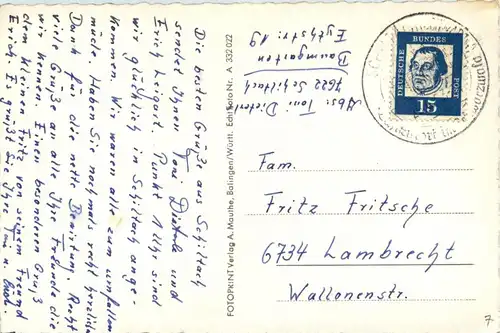 Die besten Grüße aus Schiltach
sendet Ihnen Toni Dieterle und
Erich Leipert. Punkt 1 Uhr sind
wir glücklich in Schiltach ange-
kommen. Wir waren alle zum umfallen
müde. Haben Sie nochmals recht herzlichen
Dank für die nette Bewirtung. Recht
viele Grüße an alle Ihre Freunde die
wir kennen. Einen besonderen Gruß
dem kleinen Fritz von seinem Freund
Erich. Es grüßt Sie Ihre Toni u. Erich
FOTOPRINT Verlag A. Mauthe, Balingen/Württ. Echt Foto Nr. A 332 022
Abs: Toni Dieterle
7622 Schiltach
Baumgarten
Eythstr. 19
DEUTSCHE
BUNDES
POST
15
Fam.
Fritz Fritsche
6734 Lambrecht
Wallonenstr.
7.